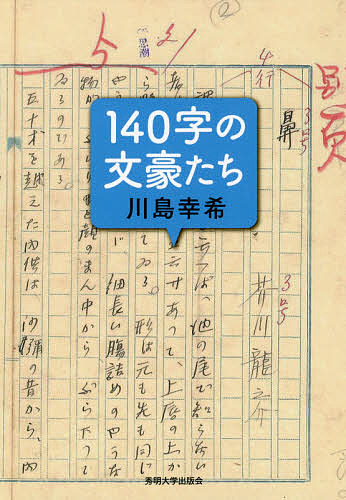 思潮
4行
鼻
3号
芥川龍之介
3号
ば、池の尾で知らない
六寸あつて、上唇の上か
てゐる。形は元も先も同じ
細長い腸詰めのやうな
顔のまん中からぶら下つて
ゐるのである。
五十才を越えた内供は、沙彌の昔から、内
140字の
文豪たち
川島幸希
秀明大学出版会